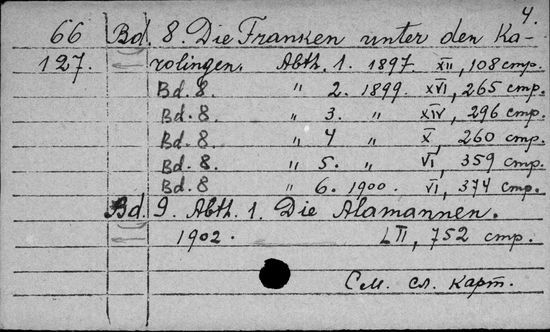 4.
66 Bd. 8. Die Franken unter den Ka-
127. rolingen. Abth. 1. 1897. XII, 108 стр.
Bd. 8. " 2. 1899. XVI, 265 стр.
Bd. 8. " 3. " XIV, 296 стр.
Bd. 8 " 4 " X, 260 стр.
Bd. 8. " 5. " VI, 359 стр.
Bd. 8 " 6. 1900. VI, 374 стр.
Bd. 9. Abth. 1. Die Alamannen.
1902. LII, 752 стр.
См. сл. карт.